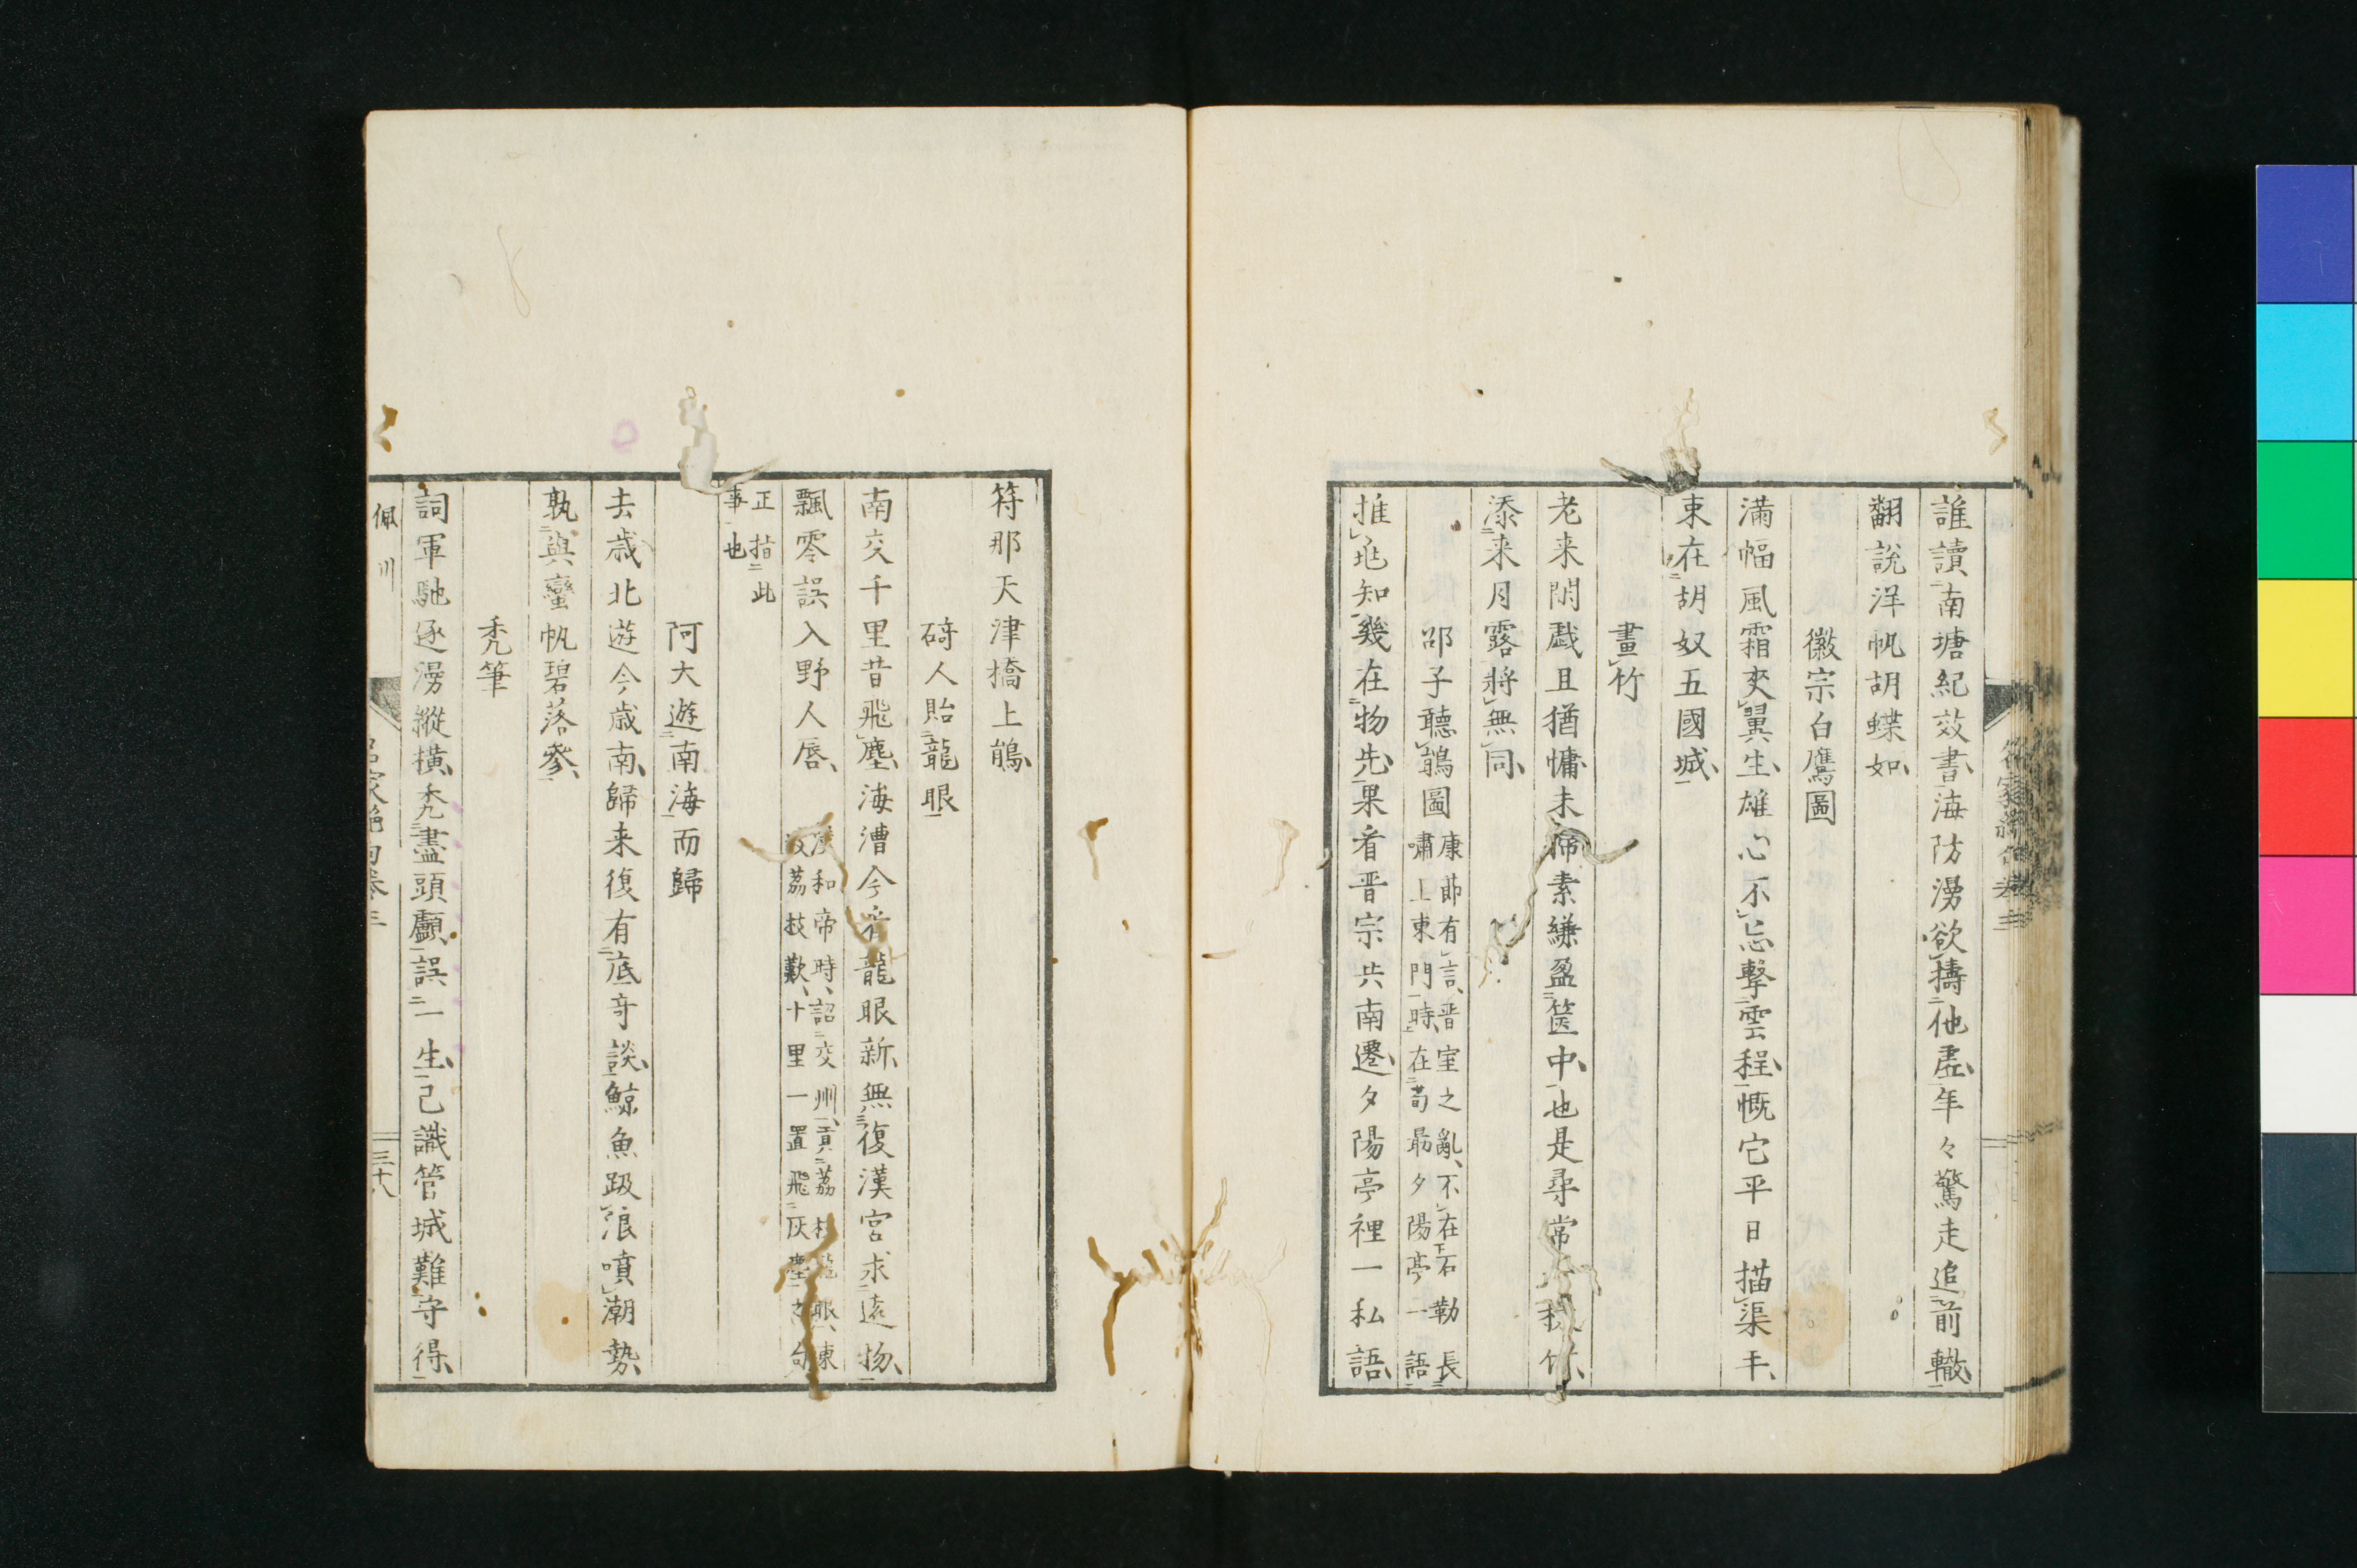 誰讀南塘紀效書海防湧欲擣他虛年々驚走追前轍
翻說洋帆胡蝶如
徽宗白鷹圖
滿幅風霜夾翼生雄心不忘擊雲程慨它平日描渠手
束在胡奴五國城
畫竹
老来閑戯且猶慵未掃素縑盈篋中也是尋常竹
添来月露將無同
邵子聽鵑圖
康節有言晋室之亂不在石勒長
嘯上東門時在荀勗夕陽亭一語
推迯知幾在物先果看晋宗共南遷夕陽亭裡一私語
符那天津橋上鵑
碕人貽龍眼
南交千里昔飛塵海漕今看龍眼新無復漢宮求遠物
飄零誤入野人唇
漢和帝時詔交州貢荔枝龍眼東
坡荔枝歎十里一置飛灰塵之句
正指此
事也
阿大遊南海而歸
去歳北遊今歳南歸来復有底奇談鯨魚跋浪噴潮勢
孰與蠻帆碧落參
禿筆
詞軍馳逐漫縱橫禿盡頭顱誤一生已識管城難守得
佩川
名家絶句卷三
三十八